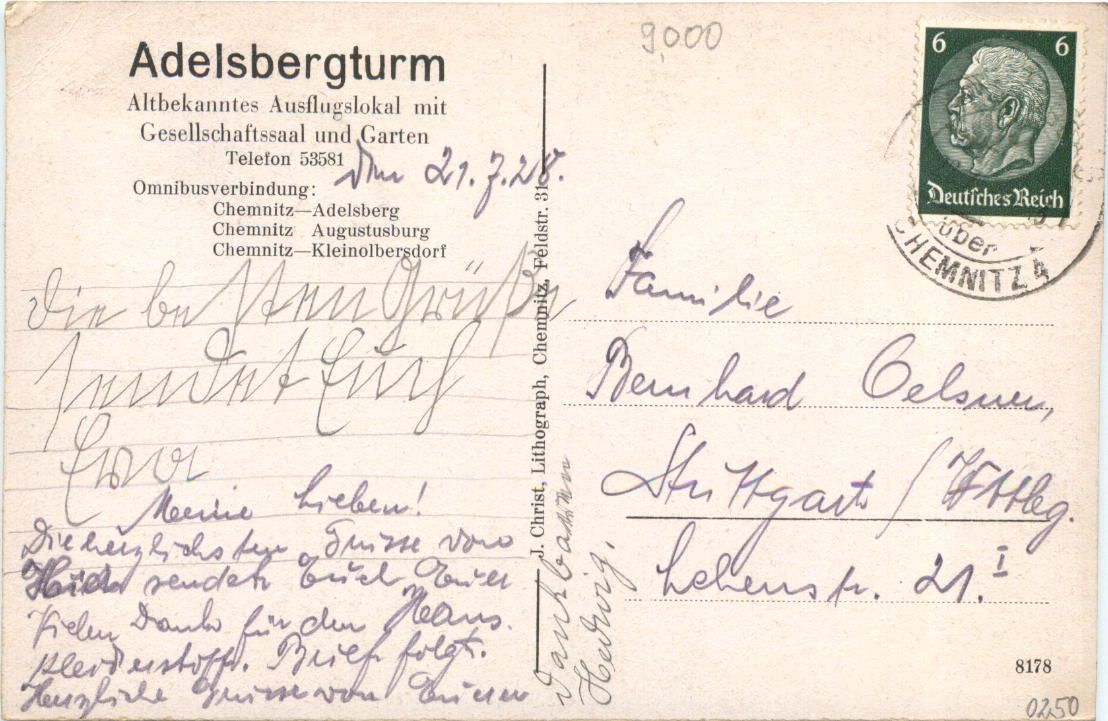 9000
Adelsbergturm
Altbekanntes Ausflugslokal mit
Gesellschaftssaal und Garten
Telefon 53581
Omnibusverbindung:
Chemnitz—Adelsberg
Chemnitz Augustusburg
Chemnitz—Kleinolbersdorf
Den 21.7.
die besten Grüße
sendet Euch
Eva
Meine Lieben!
Die herzlichsten Grüsse von
sendet Euch Euer
Vielen Dank für den Haus
kleiderstoff. Brief folgt.
Herzliche Grüsse von Euern
dankbaren
Hedwig.
J. Christ, Lithograph, Chemnitz, Feldstr. 31
6 6
Deutsches Reich
über
CHEMNITZ 4
Familie
Bernhard Oelsner,
Stuttgart / Wttbg.
Lehenstr. 21. I
8178
0250